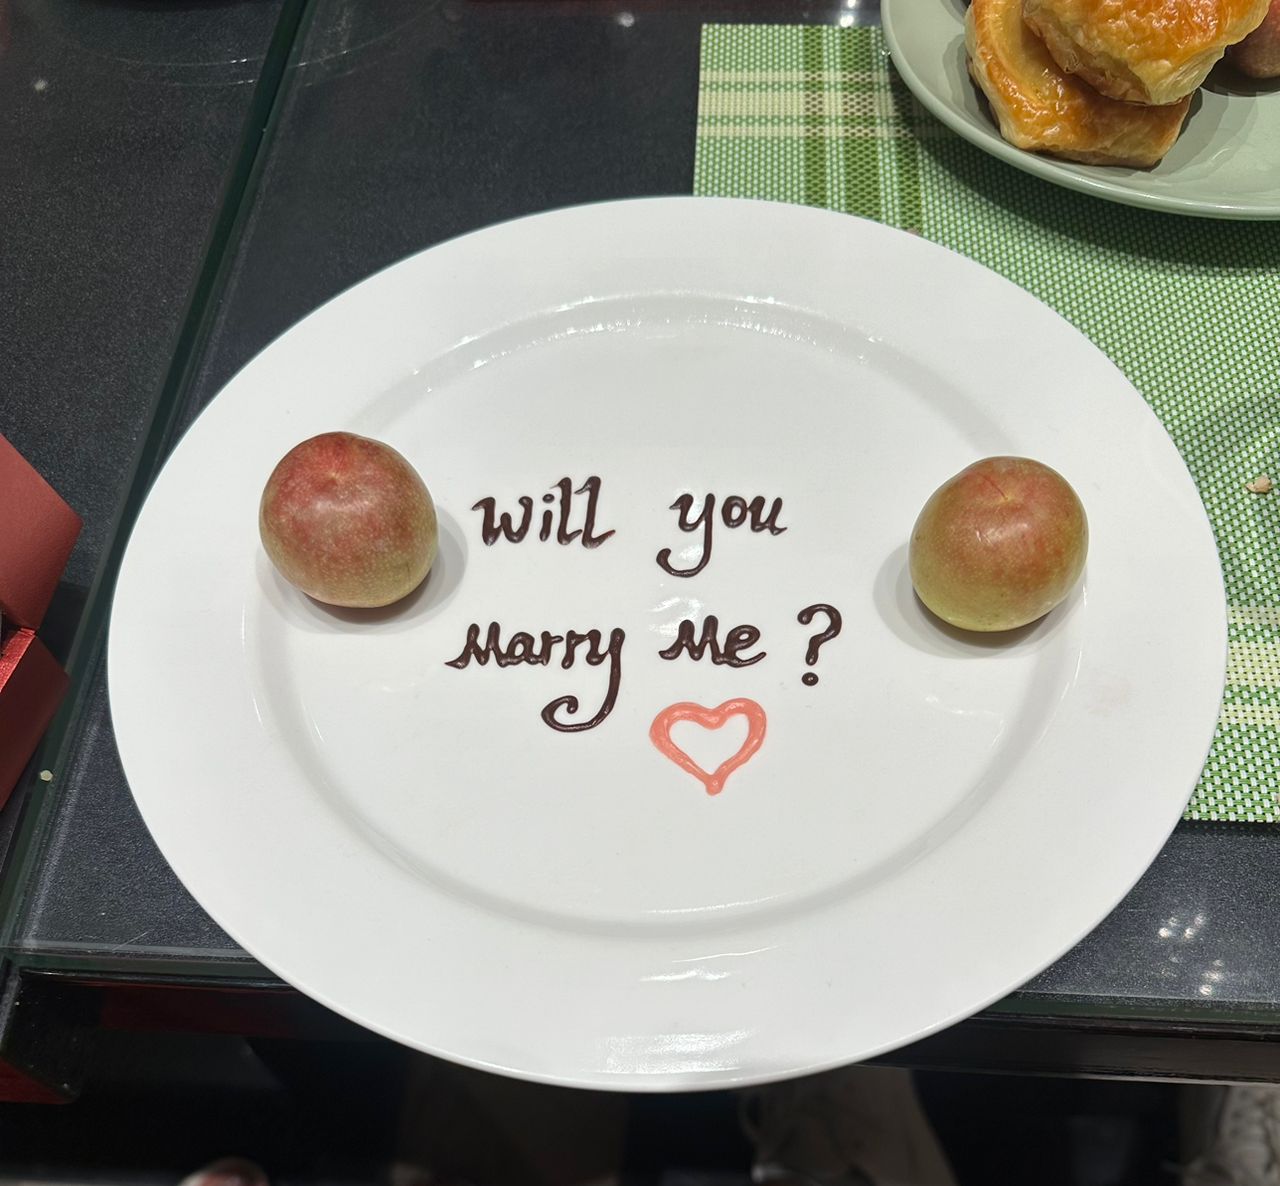 Will you
Marry Me ?